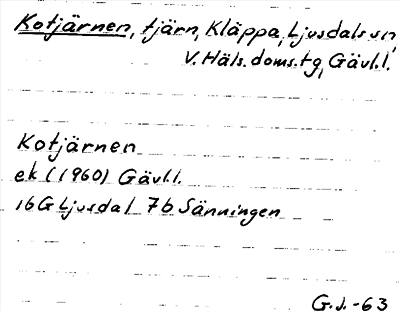 Kotjärnen, tjärn, Kläppa, Ljusdals sn
V. Häls. doms.tg, Gävl.l.
Kotjärnen
ek (1960) Gävl.l.
16G Ljusdal 7b Sänningen
G.J.-63